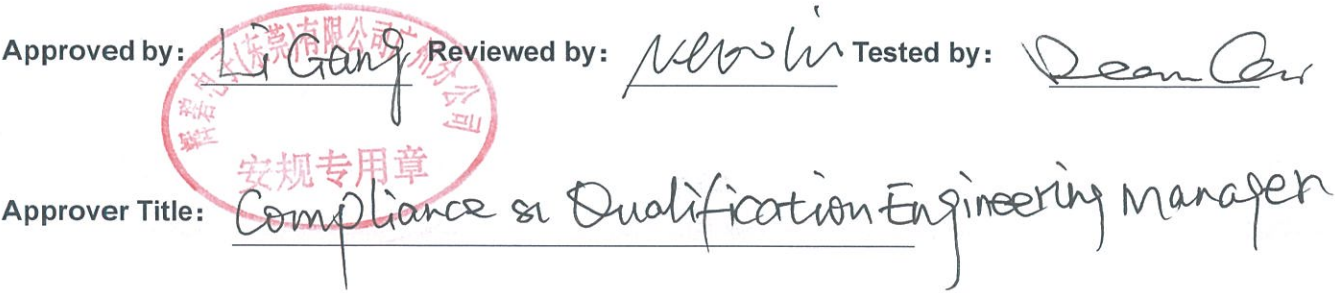 Approved by: Li Gang Reviewed by: Tested by: Dean
(东莞)有限公司广州分公司
安规专用章
Approver Title: Compliance & Qualification Engineering Manager